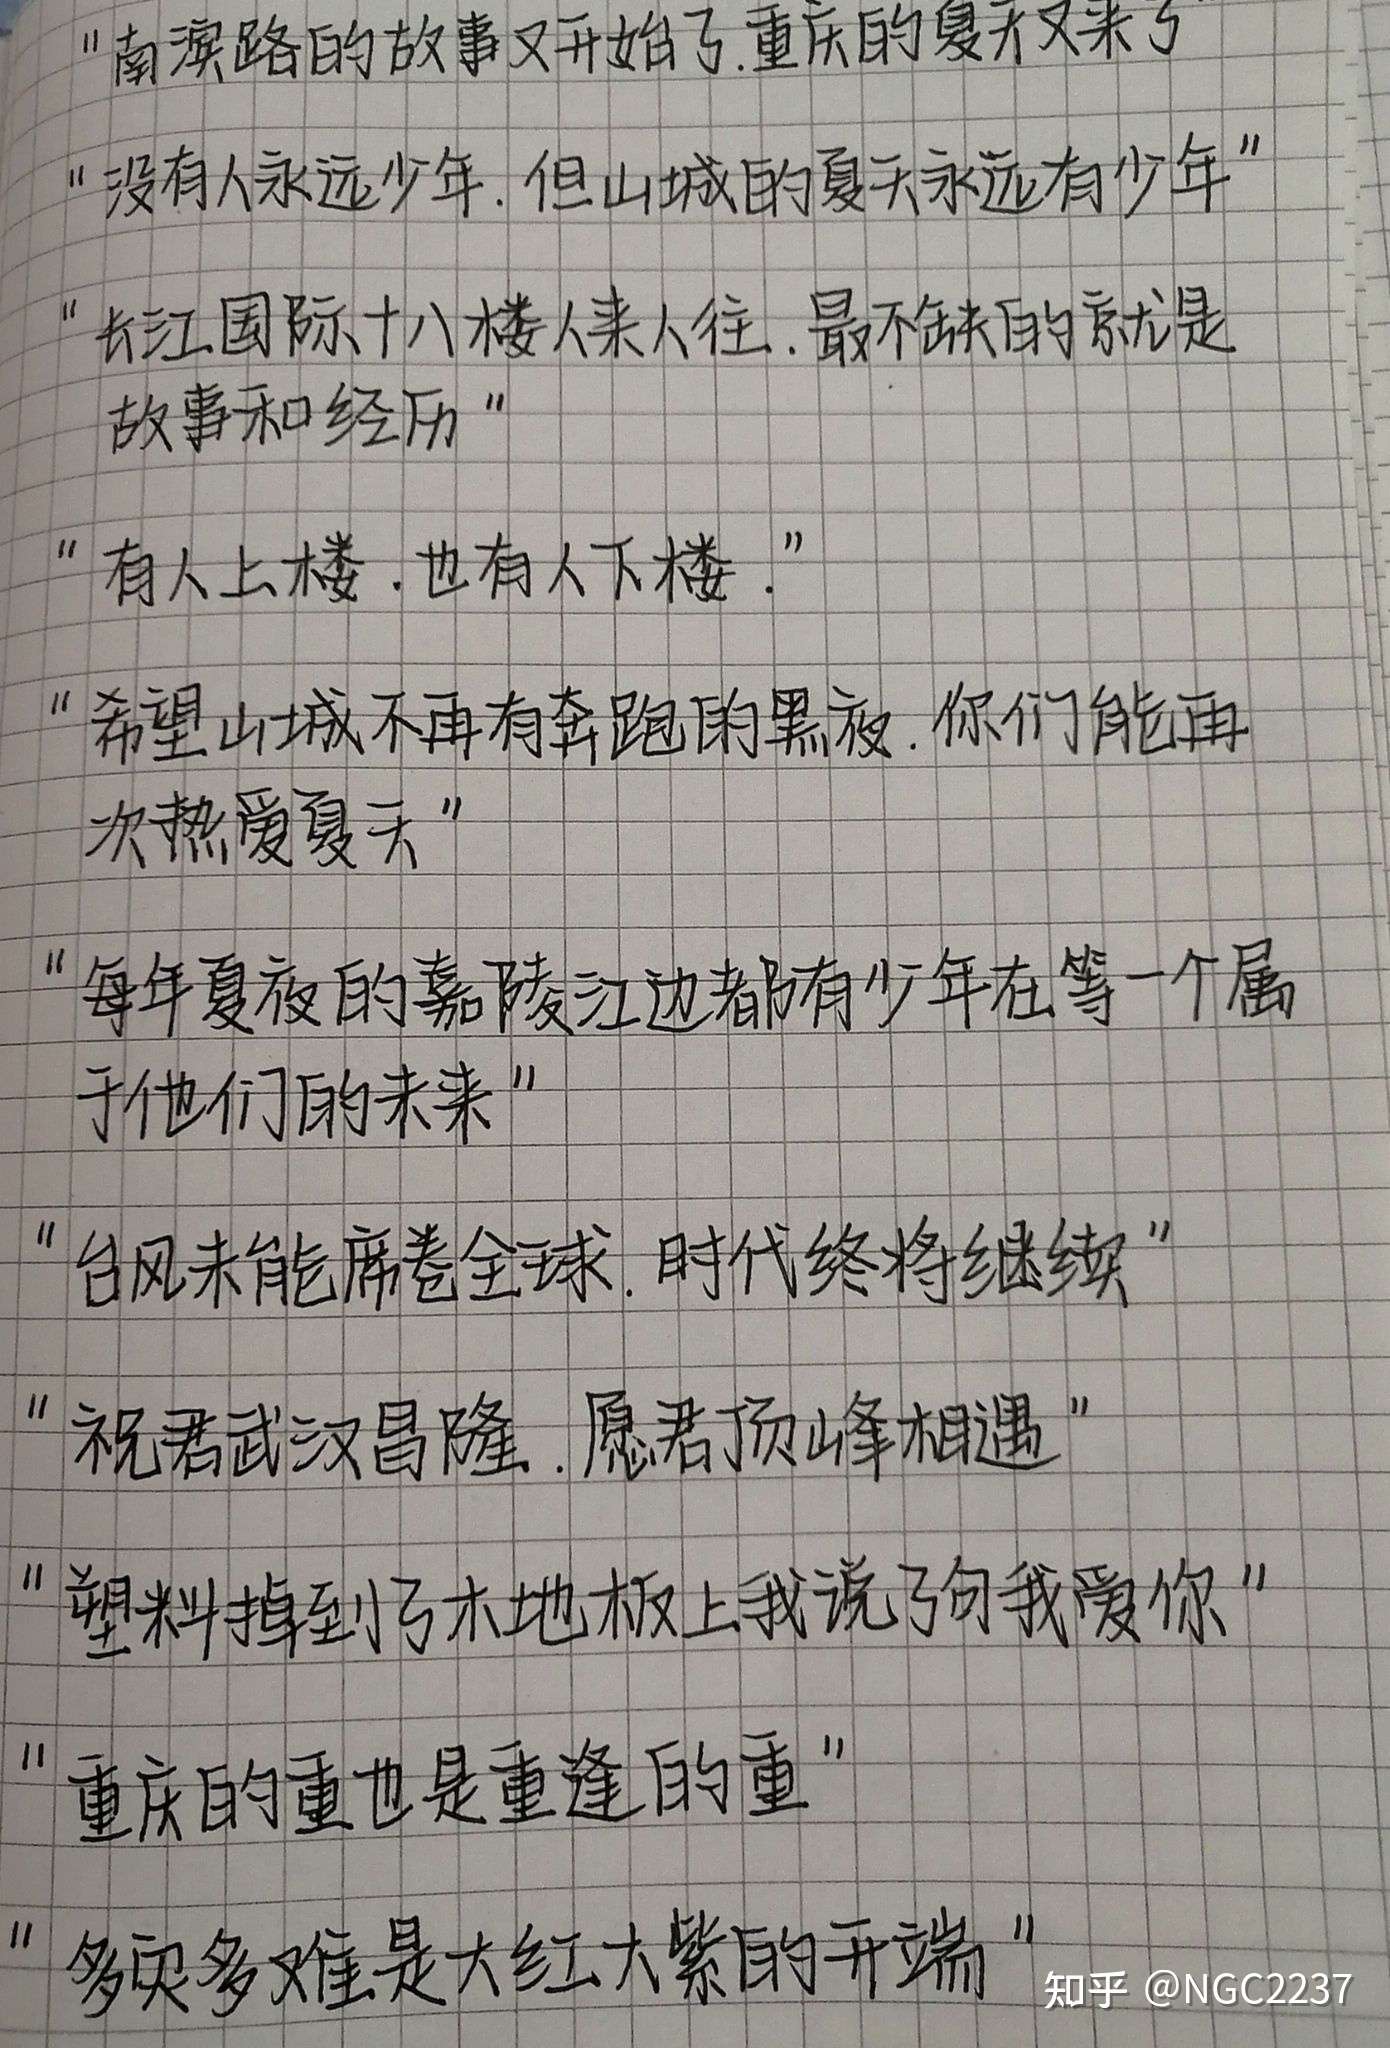 "南滨路的故事又开始了.重庆的夏天又来了"
"没有人永远少年.但山城的夏天永远有少年"
"长江国际十八楼人来人往.最不缺的就是
故事和经历"
"有人上楼.也有人下楼."
"希望山城不再有奔跑的黑夜.你们能再
次热爱夏天"
"每年夏夜的嘉陵江边都有少年在等一个属
于他们的未来"
"台风未能席卷全球.时代终将继续"
"祝君武汉昌隆.愿君顶峰相遇"
"塑料掉到了木地板上我说了句我爱你"
"重庆的重也是重逢的重"
"多灾多难是大红大紫的开端"
知乎 @NGC2237